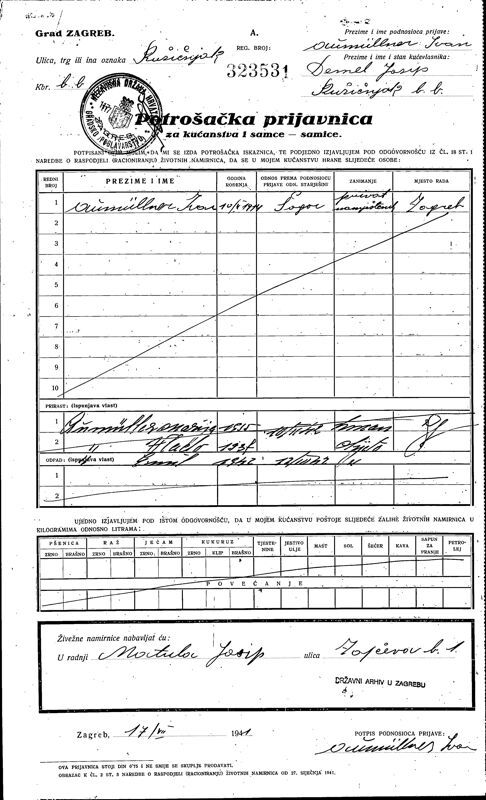 Grad ZAGREB.
A.
Prezime i ime podnosioca prijave:
Aumüllner Ivan
Ulica, trg ili ina oznaka Kušičnjak
REG. BROJ:
323531
Prezime i ime i stan kućevlasnika:
Demel Josip
Kušičnjak b. b.
Kbr. b. b.
Potrošačka prijavnica
za kućanstva i samce — samice.
DA MI SE IZDA POTROŠAČKA ISKAZNICA, TE PODJEDNO IZJAVLJUJEM POD ODGOVORNOŠĆU IZ ČL. 18 ST. 1
NAREDBE O RASPODJELI (RACIONIRANJU) ŽIVOTNIH NAMIRNICA, DA SE U MOJEM KUĆANSTVU HRANE SLIJEDEĆE OSOBE:
REDNI BROJ
PREZIME I IME
GODINA ROĐENJA
ODNOS PREMA PODNOSIOCU PRIJAVE ODN. STARJEŠINI
ZANIMANJE
MJESTO RADA
1 Aumüllner Ivan 1914 privat. namještenik Zagreb
2
3
4
5
6
7
8
9
10
PRIRAST: (ispunjava vlast)
1 Aumüllner 1915
2 " Vlado 1938
ODPAD: (ispunjava vlast)
Emil 1942
1
2
UJEDNO IZJAVLJUJEM POD ISTOM ODGOVORNOŠĆU, DA U MOJEM KUĆANSTVU POSTOJE SLIJEDEĆE ZALIHE ŽIVOTNIH NAMIRNICA U
KILOGRAMIMA ODNOSNO LITRAMA:
PŠENICA RAŽ JEČAM KUKURUZ TJESTENINE JESTIVO ULJE MAST SOL ŠEĆER KAVA SAPUN ZA PRANJE PETROLEJ
ZRNO BRAŠNO ZRNO BRAŠNO ZRNO BRAŠNO ZRNO KLIP BRAŠNO
POVEĆANJE
Živežne namirnice nabavljat ću:
U radnji Matula Josip ulica b. 1
DRŽAVNI ARHIV U ZAGREBU
Zagreb, 17/VII 1941.
POTPIS PODNOSIOCA PRIJAVE:
Aumüllner Ivan
OVA PRIJAVNICA STOJI DIN 0'75 I NE SMIJE SE SKUPLJE PRODAVATI.
OBRAZAC K ČL. 2 ST. 3 NAREDBE O RASPODJELI (RACIONIRANJU) ŽIVOTNIH NAMIRNICA OD 27. SIJEČNJA 1941.